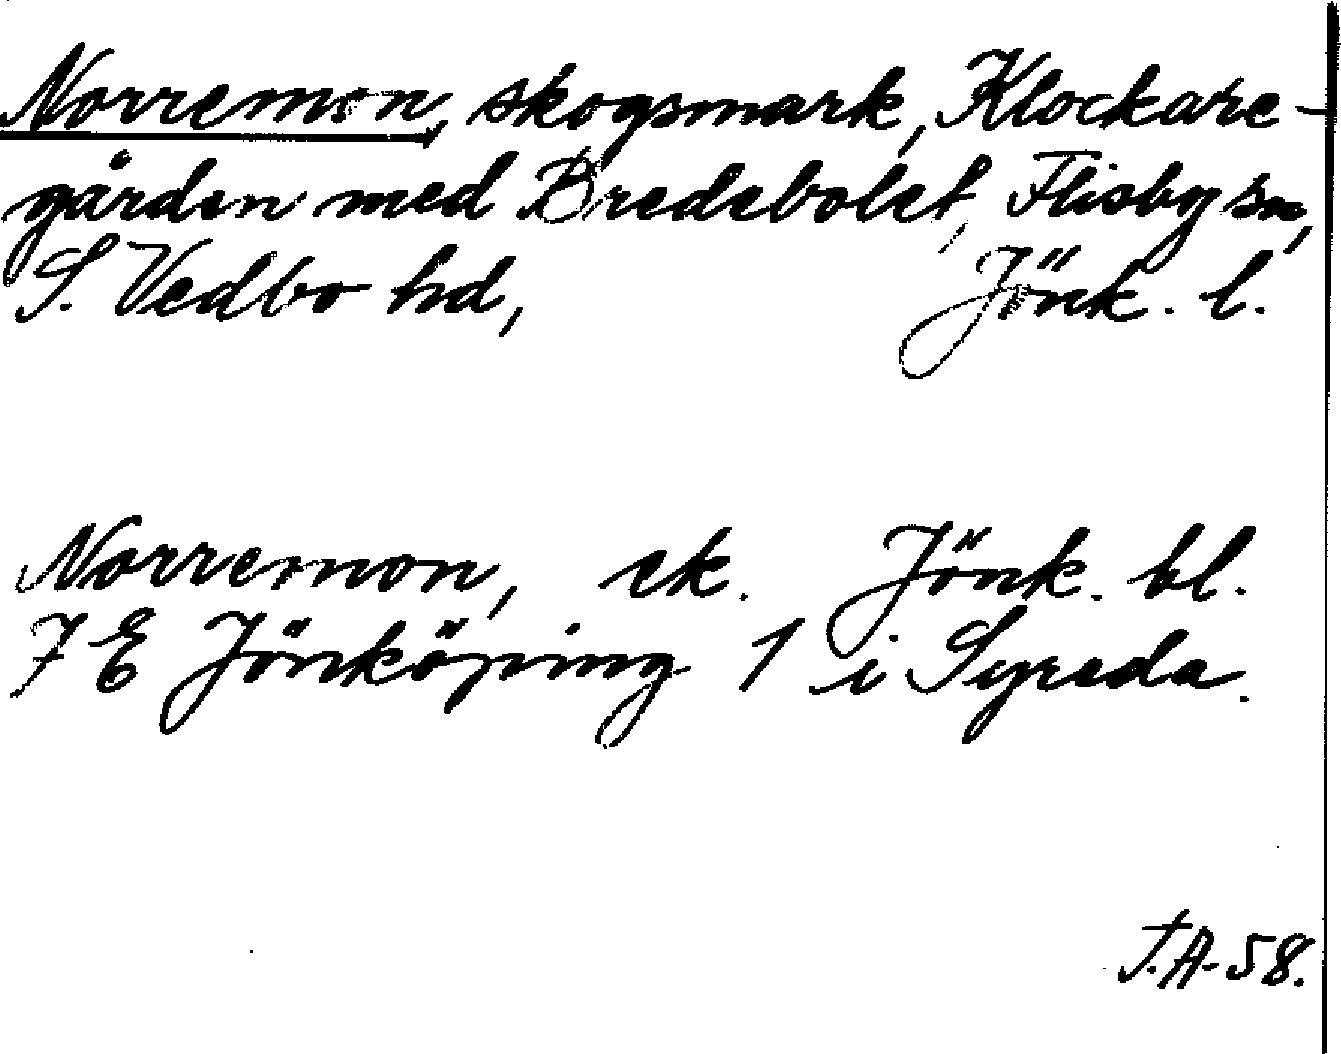 Norremon, skogsmark, Klockare-
gården med Bredebolet, Flisby sn,
S. Vedbo hd, Jönk. l.
Norremon, ek. Jönk. bl.
7 E Jönköping 1 i Syreda.
T.A-58.